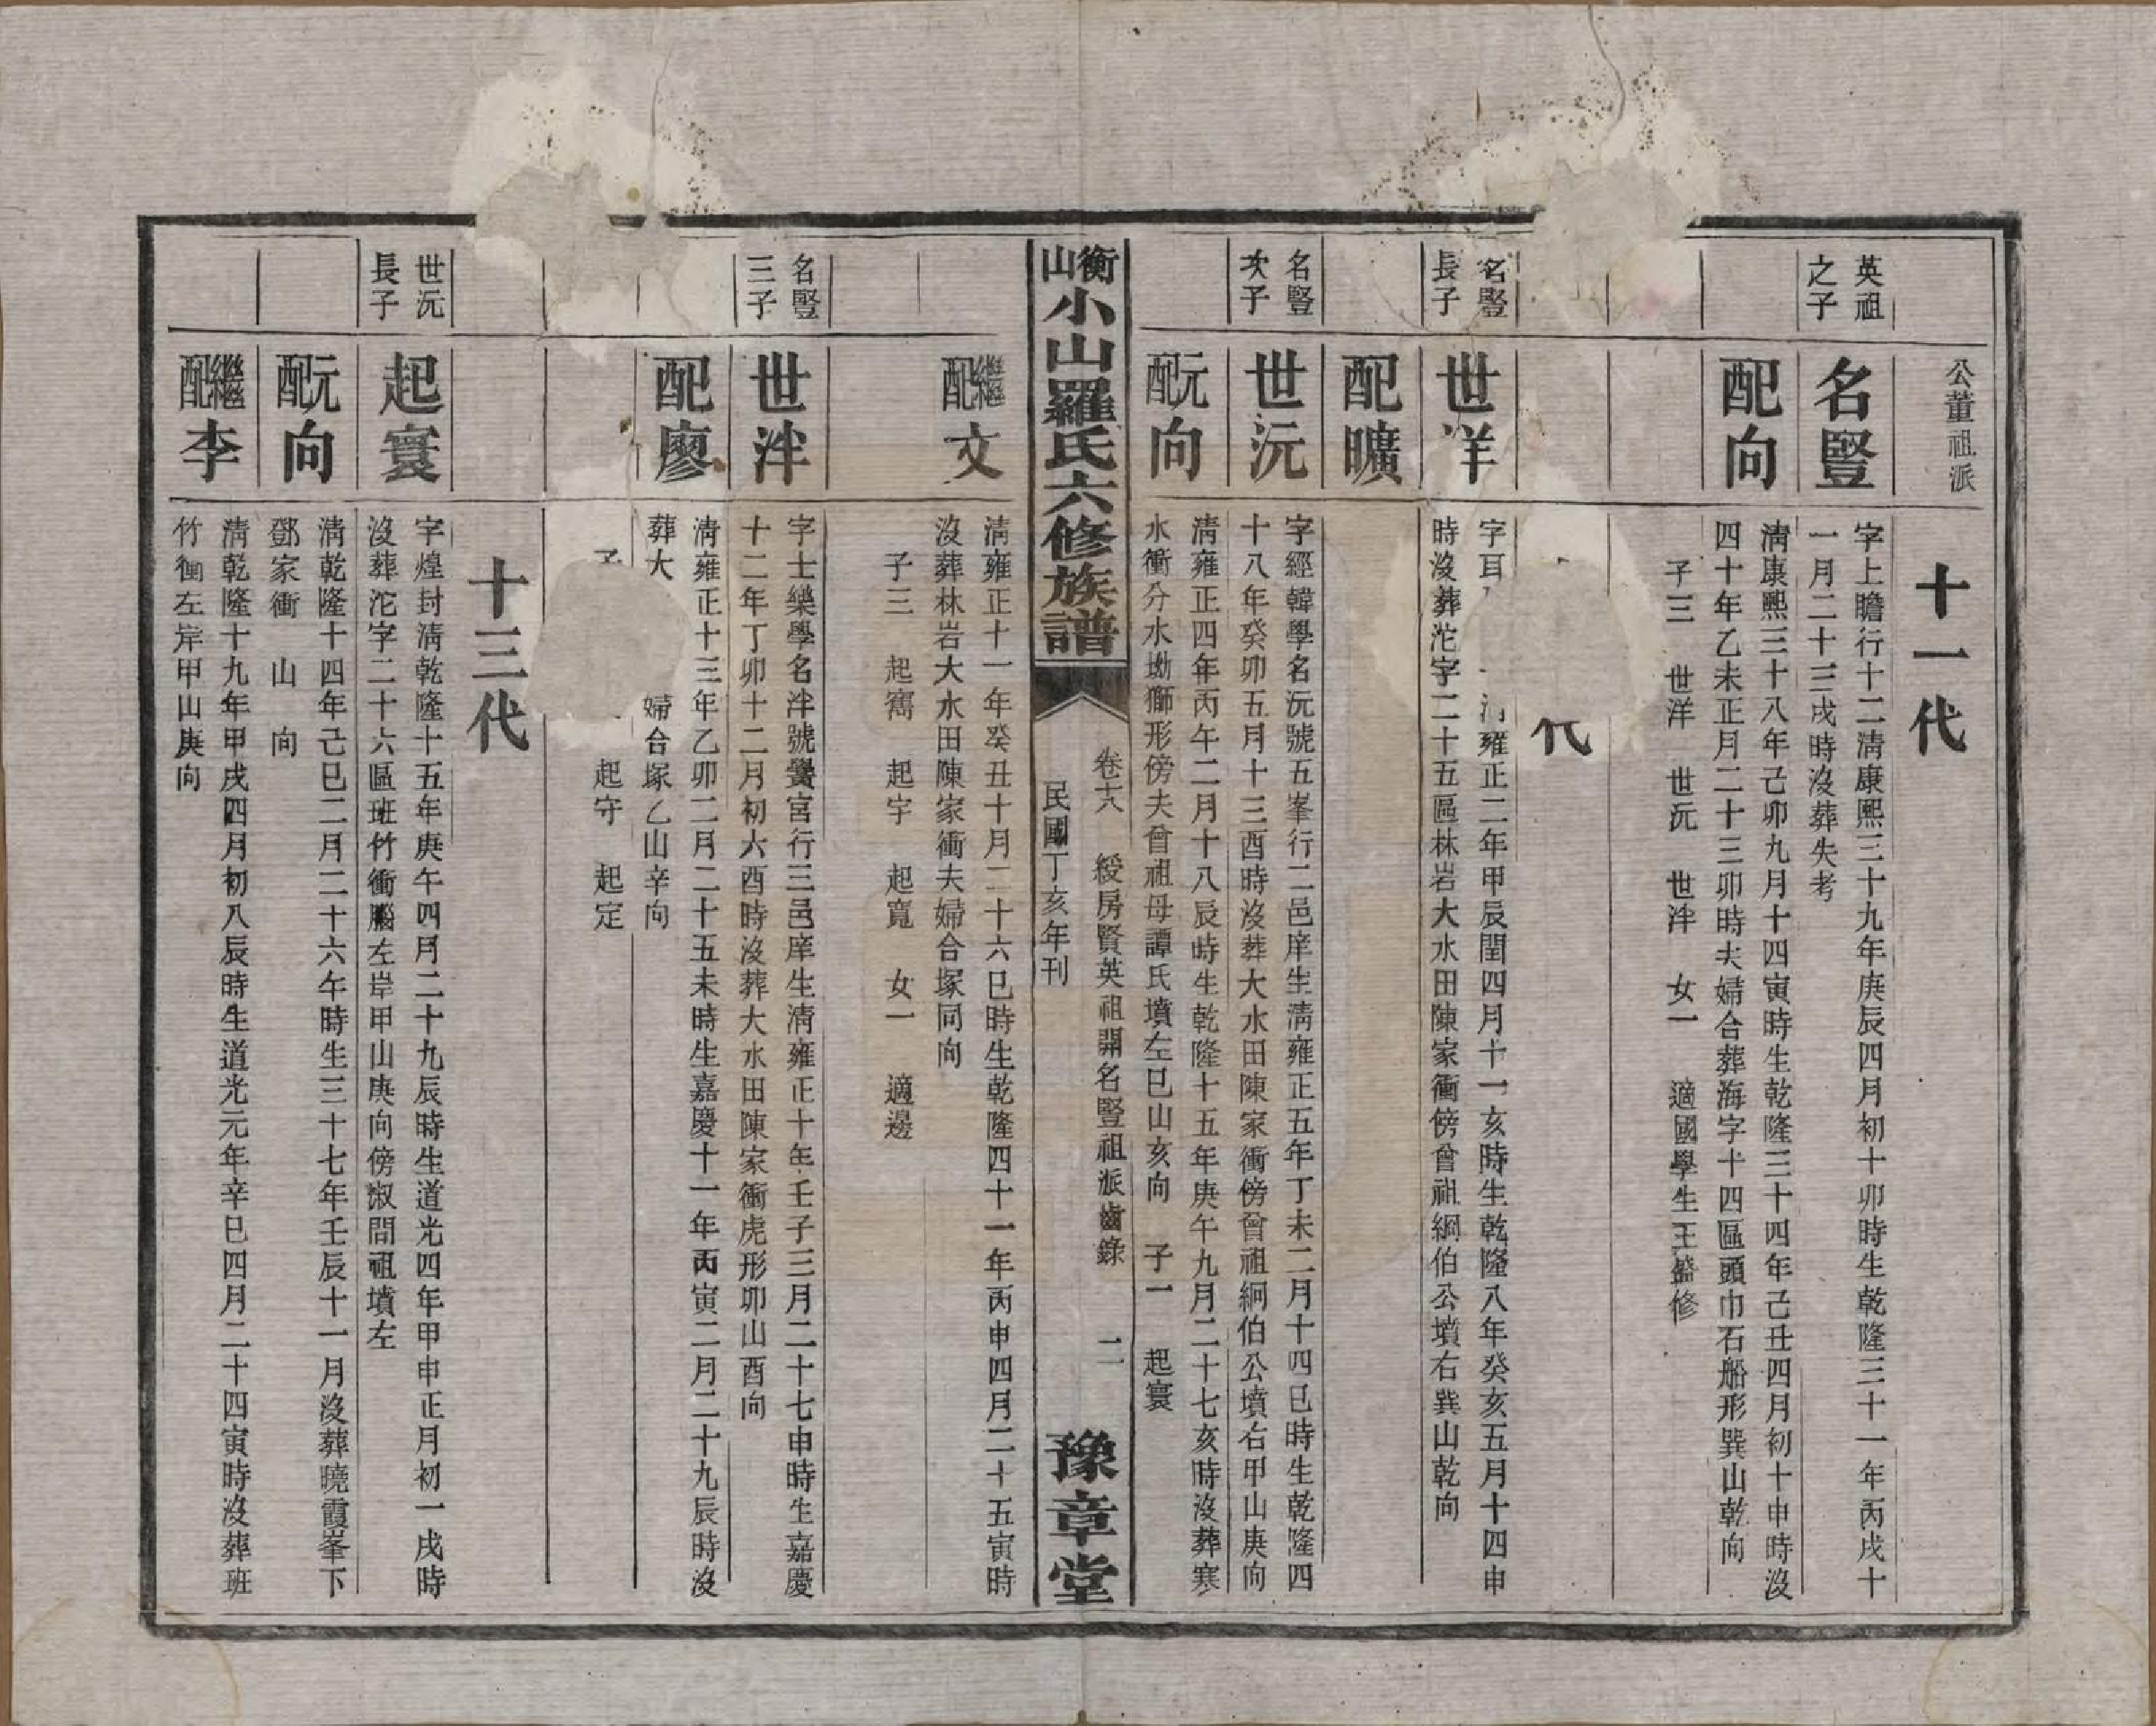 公董祖派
十一代
英祖之子
名豎
字上瞻行十二淸康熙三十九年庚辰四月初十卯時生乾隆三十一年丙戌十
一月二十三戌時沒葬失考
配向
淸康熙三十八年己卯九月十四寅時生乾隆三十四年己丑四月初十申時沒
四十年乙未正月二十三卯時夫婦合葬海字十四區頭巾石船形巽山乾向
子三 世洋 世沅 世泮 女一 適國學生王盛修
代
名豎長子
世洋
字 雍正二年甲辰閏四月十一亥時生乾隆八年癸亥五月十四申
時沒葬沱字二十五區林岩大水田陳家衝傍曾祖綱伯公墳右巽山乾向
配曠
名豎次子
世沅
字經韓學名沅號五峯行二邑庠生淸雍正五年丁未二月十四巳時生乾隆四
十八年癸卯五月十三酉時沒葬大水田陳家衝傍曾祖絅伯公墳右甲山庚向
元配向
淸雍正四年丙午二月十八辰時生乾隆十五年庚午九月二十七亥時沒葬寒
水衝分水坳獅形傍夫曾祖母譚氏墳左巳山亥向 子一 起寰
衡山小山羅氏六修族譜
卷十六 綬房賢英祖開名豎祖派齒錄 二
民國丁亥年刊
豫章堂
繼配文
淸雍正十一年癸丑十月二十六巳時生乾隆四十一年丙申四月二十五寅時
沒葬林岩大水田陳家衝夫婦合塚同向
子三 起寯 起宇 起寬 女一 適邊
名豎三子
世泮
字士樂學名泮號黌宮行三邑庠生淸雍正十年壬子三月二十七申時生嘉慶
十二年丁卯十二月初六酉時沒葬大水田陳家衝虎形卯山酉向
配廖
淸雍正十三年乙卯二月二十五未時生嘉慶十一年丙寅二月二十九辰時沒
葬大 婦合塚乙山辛向
子 起守 起定
十三代
世沅長子
起寰
字煌封淸乾隆十五年庚午四月二十九辰時生道光四年甲申正月初一戌時
沒葬沱字二十六區班竹衝腦左岸甲山庚向傍淑間祖墳左
元配向
淸乾隆十四年己巳二月二十六午時生三十七年壬辰十一月沒葬曉霞峯下
鄧家衝 山 向
繼配李
淸乾隆十九年甲戌四月初八辰時生道光元年辛巳四月二十四寅時沒葬班
竹衝左岸甲山庚向